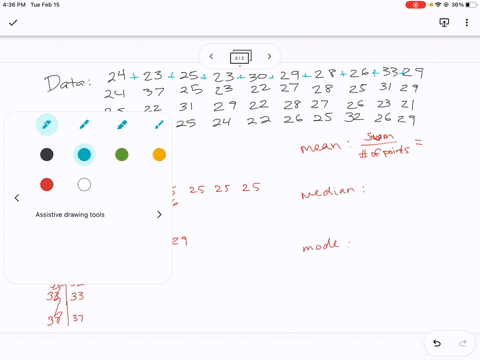 4:36 PM Tue Feb 15
36%
2/2
Data: 24 + 23 + 25 + 23 + 30 + 29 + 28 + 26 + 33 + 29
24 37 25 23 22 27 28 25 31 29
22 31 29 22 28 27 26 23 21
25 24 22 26 25 32 26 29
mean: sum / # of points =
25 25 25
median:
Assistive drawing tools
29
mode:
33
37